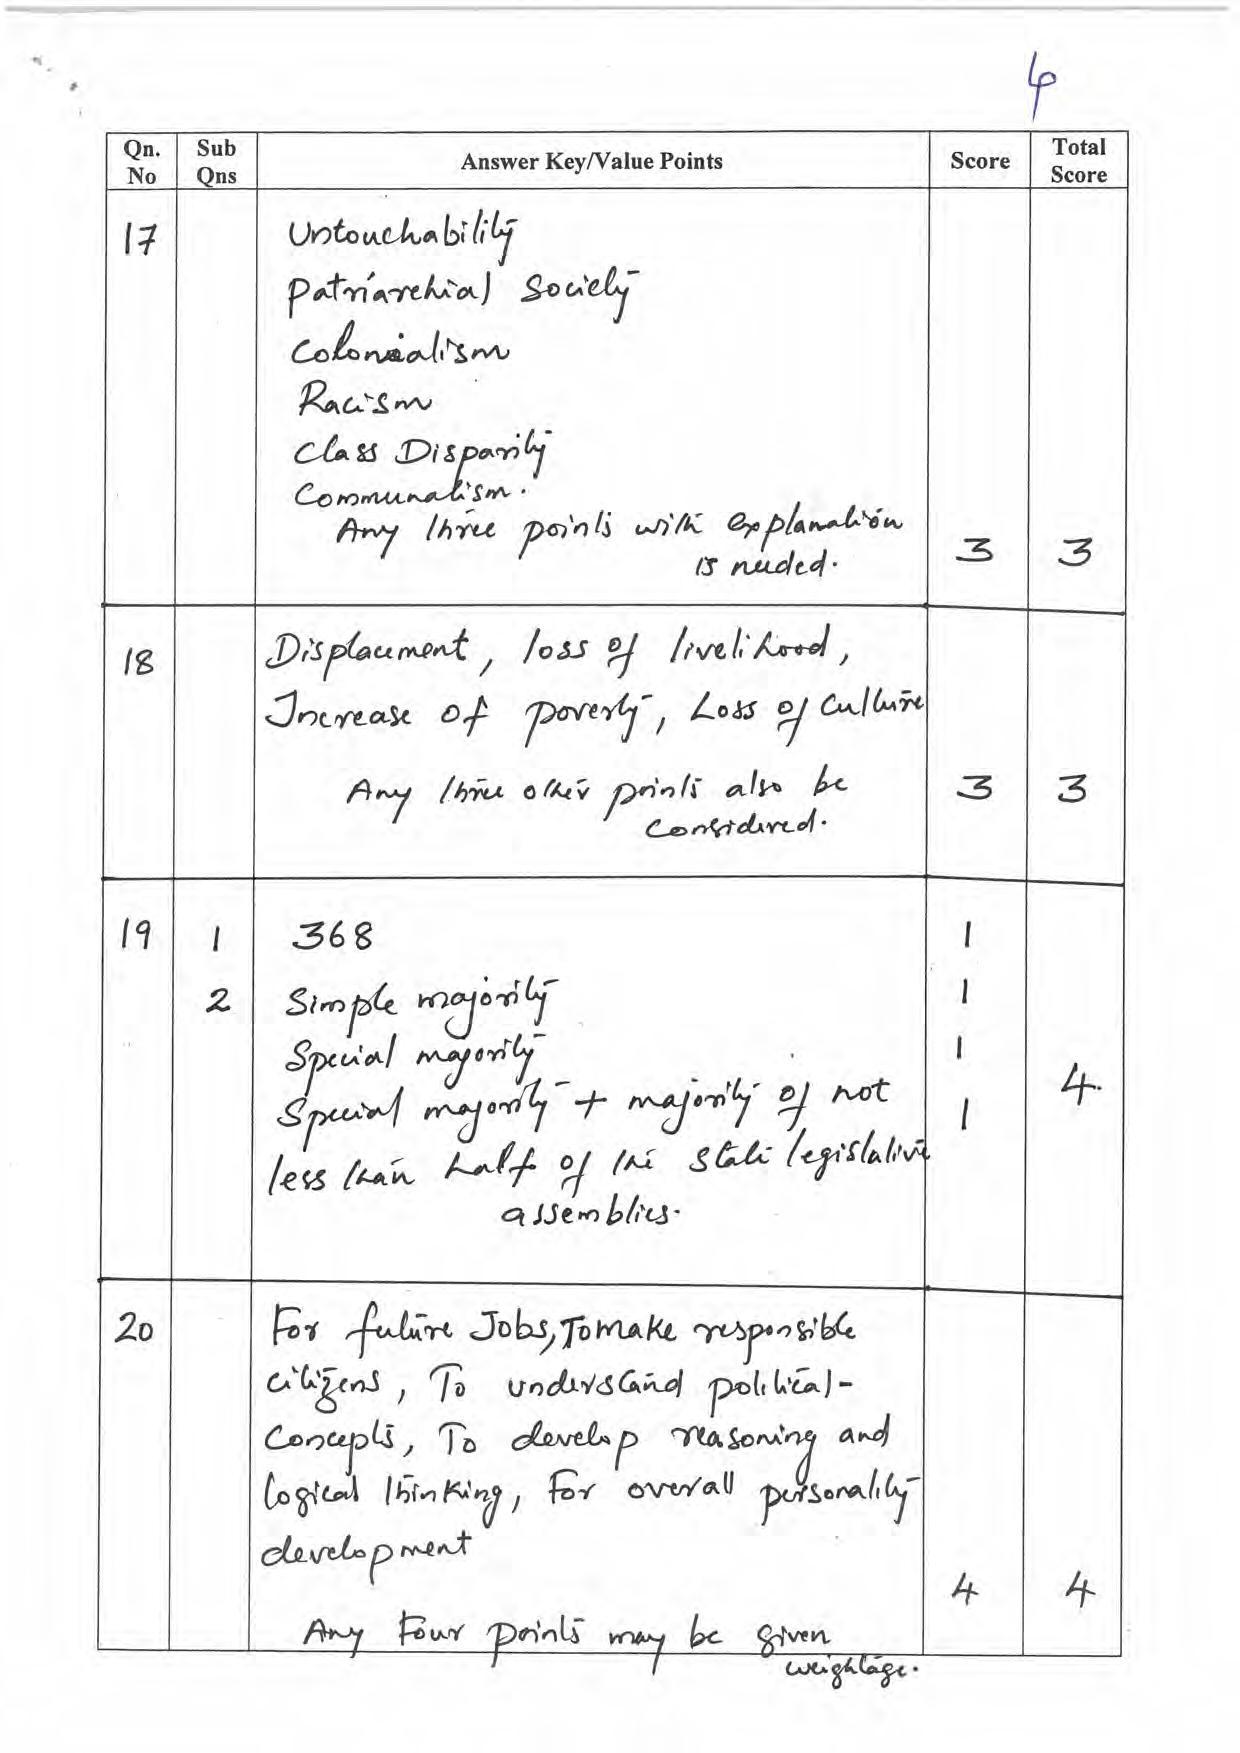 4
Qn. No | Sub Qns | Answer Key/Value Points | Score | Total Score
17 | Untouchability
Patriarchial Society
Colonialism
Racism
Class Disparity
Communalism.
Any three points with explanation
is needed. | 3 | 3
18 | Displacement, loss of livelihood,
Increase of poverty, Loss of Culture
Any three other points also be | 3 | 3
considered.
19 | 1 | 368 | 1
2 | Simple majority | 1
Special majority | 1
Special majority + majority of not | 1 | 4.
less than half of the state legislative
assemblies.
20 | For future Jobs, To make responsible
citizens, To understand political-
Concepts, To develop reasoning and
logical thinking, For overall personality
development | 4 | 4
Any Four points may be given
weightage.